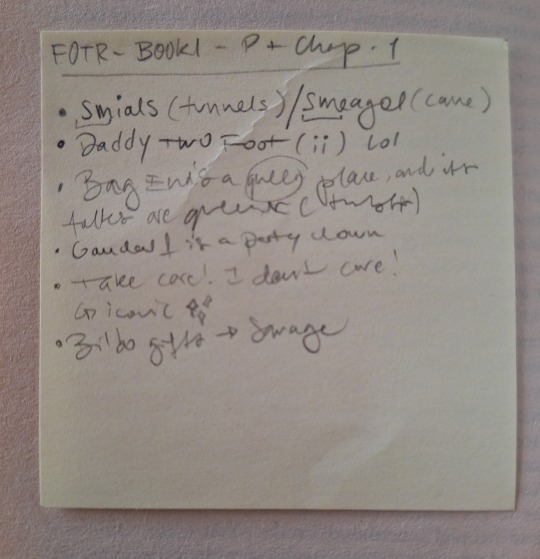 FOTR - BOOK1 - P + Chap. 1
• Smials (tunnels)/Smeagol (cave)
• Daddy Two Foot (ii) lol
• Bag End's a queer place, and its
folks are queerer
• Gandalf is a party clown
• Take care! I don't care!
↳ iconic
• Bilbo gifts → Savage